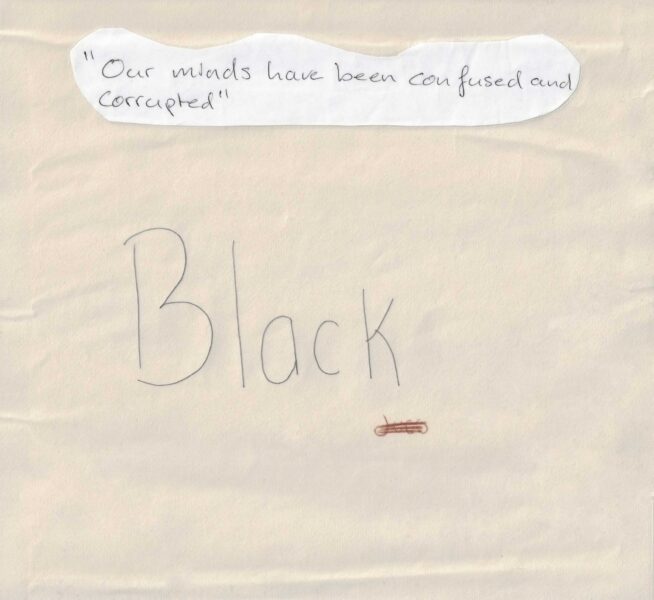 "Our minds have been confused and
corrupted"
Black